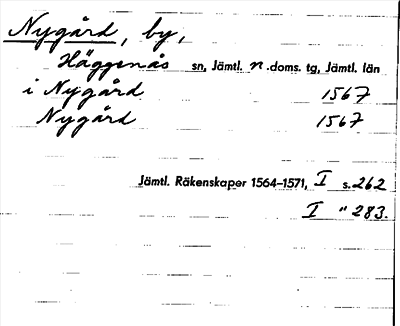 Nygård, by,
Häggenås sn, Jämtl. n. doms. tg, Jämtl. län
i Nygård 1567
Nygård 1567
Jämtl. Räkenskaper 1564–1571, I s. 262
I " 283.